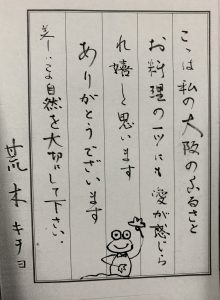 こゝは私の大阪のふるさと
お料理の一ツにも愛が感じら
れ嬉しく思います
ありがとうでございます
美しいこの自然を大切にして下さい
荒木キチヨ